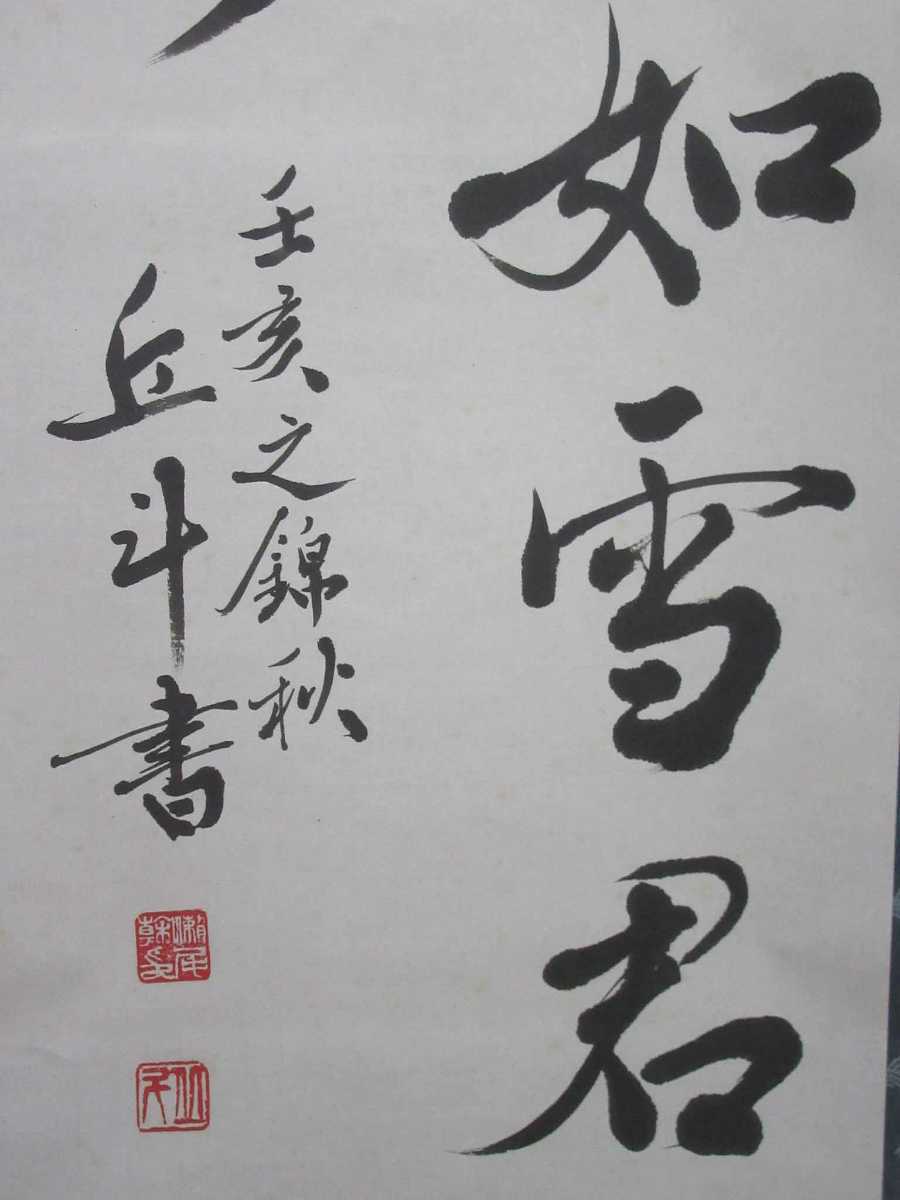 如雪君
壬亥之錦秋
丘斗書